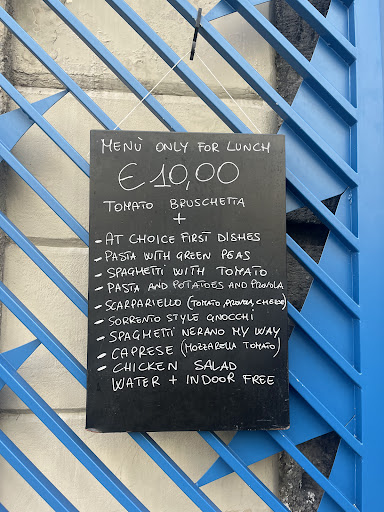 MENÙ ONLY FOR LUNCH
€ 10,00
TOMATO BRUSCHETTA
+
- AT CHOICE FIRST DISHES
- PASTA WITH GREEN PEAS
- SPAGHETTI WITH TOMATO
- PASTA AND POTATOES AND PROVOLA
- SCARPARIELLO (TOMATO, PROVOLA, CHEESE)
- SORRENTO STYLE GNOCCHI
- SPAGHETTI NERANO MY WAY
- CAPRESE (MOZZARELLA TOMATO)
- CHICKEN SALAD
WATER + INDOOR FREE